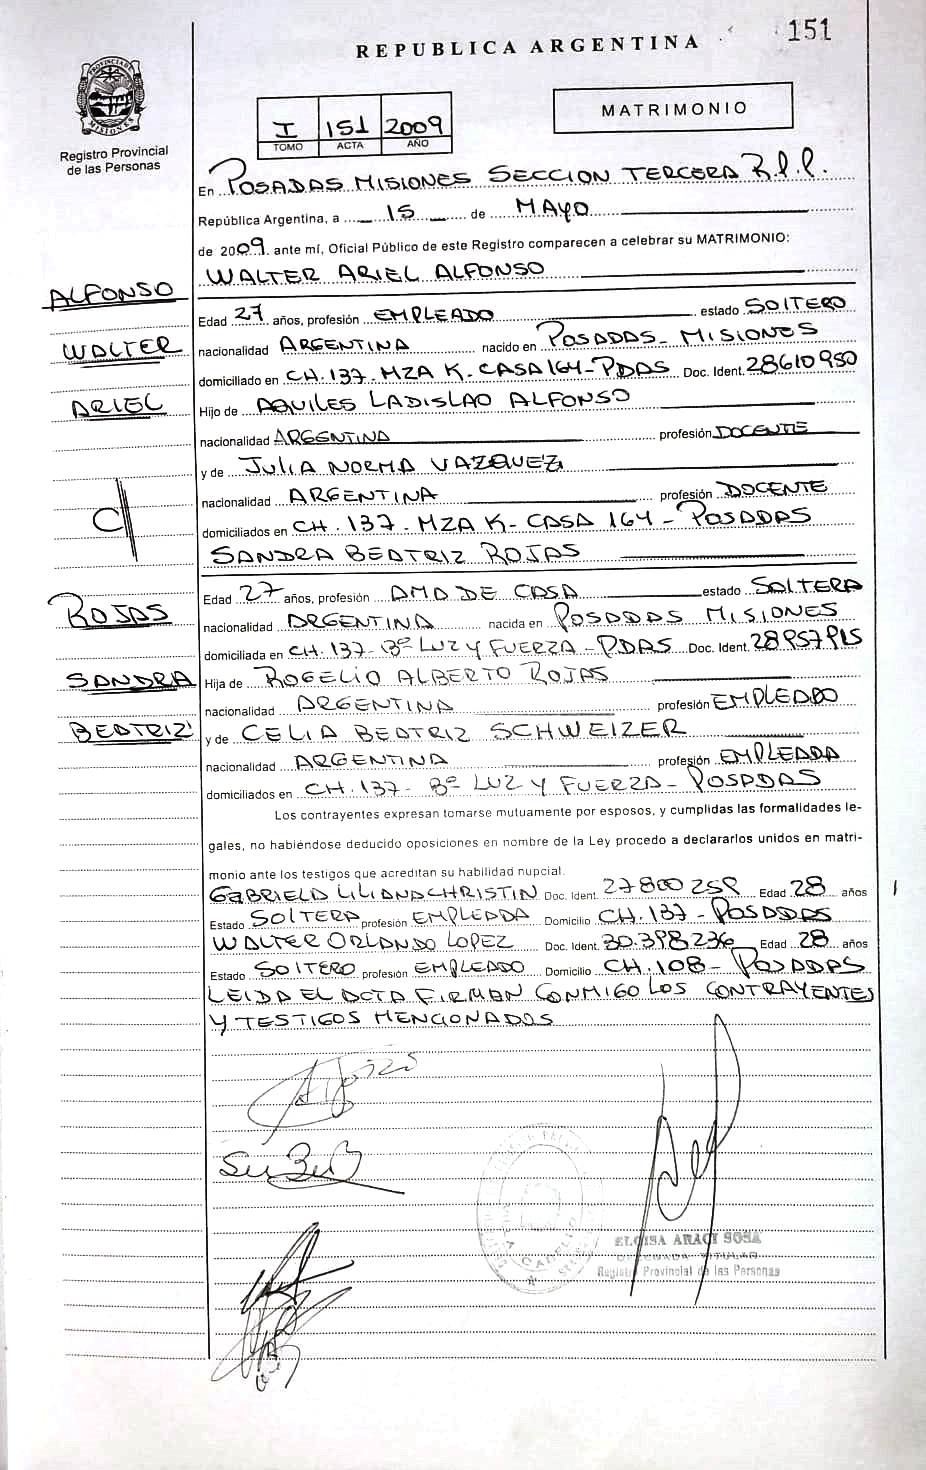 151
REPUBLICA ARGENTINA
PROVINCIA DE MISIONES
Registro Provincial
de las Personas
I 151 2009
TOMO ACTA AÑO
MATRIMONIO
En POSADAS MISIONES SECCION TERCERA R.P.P.
República Argentina, a 15 de MAYO
de 2009. ante mí, Oficial Público de este Registro comparecen a celebrar su MATRIMONIO:
WALTER ARIEL ALFONSO
ALFONSO
WALTER
ARIEL
Edad 27 años, profesión EMPLEADO estado SOLTERO
nacionalidad ARGENTINA nacido en POSADAS - MISIONES
domiciliado en CH. 137 - MZA K - CASA 164 - PDAS Doc. Ident. 28610950
Hijo de AQUILES LADISLAO ALFONSO
nacionalidad ARGENTINA profesión DOCENTE
y de JULIA NORMA VAZQUEZ
nacionalidad ARGENTINA profesión DOCENTE
domiciliados en CH. 137 - MZA K - CASA 164 - POSADAS
SANDRA BEATRIZ ROJAS
ROJAS
SANDRA
BEATRIZ
Edad 27 años, profesión AMA DE CASA estado SOLTERA
nacionalidad ARGENTINA nacida en POSADAS MISIONES
domiciliada en CH. 137 - Bº LUZ Y FUERZA - PDAS Doc. Ident. 28957915
Hija de ROGELIO ALBERTO ROJAS
nacionalidad ARGENTINA profesión EMPLEADO
y de CELIA BEATRIZ SCHWEIZER
nacionalidad ARGENTINA profesión EMPLEADA
domiciliados en CH. 137 - Bº LUZ Y FUERZA - POSADAS
Los contrayentes expresan tomarse mutuamente por esposos, y cumplidas las formalidades le-
gales, no habiéndose deducido oposiciones en nombre de la Ley procedo a declararlos unidos en matri-
monio ante los testigos que acreditan su habilidad nupcial.
GABRIELA LILIANA CHRISTIN Doc. Ident. 27800259 Edad 28 años
Estado SOLTERA profesión EMPLEADA Domicilio CH. 137 - POSADAS
WALTER ORLANDO LOPEZ Doc. Ident. 30.398.236 Edad 28 años
Estado SOLTERO profesión EMPLEADO Domicilio CH. 108 - POSADAS
LEIDA EL ACTA FIRMAN CONMIGO LOS CONTRAYENTES
Y TESTIGOS MENCIONADOS
ELOISA ARACI SOSA
DELEGADA TITULAR
Registro Provincial de las Personas